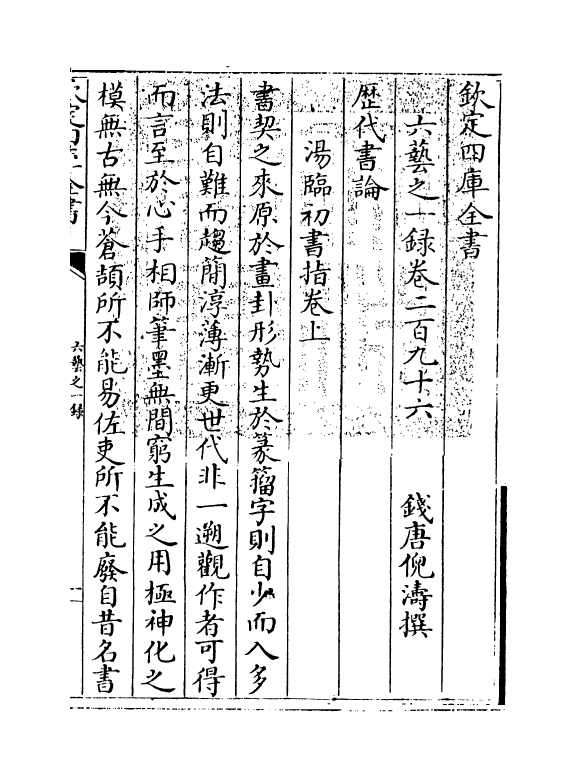 欽定四庫全書
六藝之一錄卷二百九十六
錢唐倪濤撰
歴代書論
湯臨初書指卷上
書契之來原於畫卦形勢生於篆籀字則自少而入多
法則自難而趨簡淳薄漸更世代非一遡觀作者可得
而言至於心手相師筆墨無間窮生成之用極神化之
模無古無今蒼頡所不能易佐吏所不能廢自昔名書
六藝之一錄